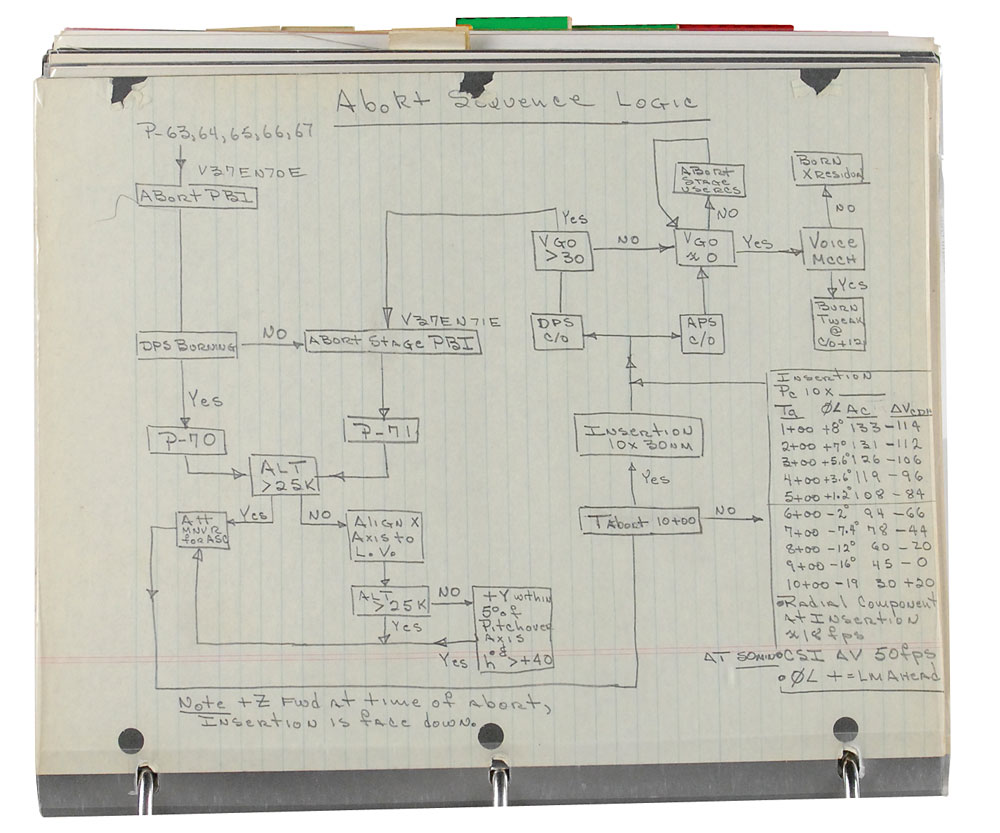 Abort Sequence Logic
P-63, 64, 65, 66, 67
V37EN70E
Abort PBI
DPS Burning
NO
Yes
P-70
V37EN71E
Abort Stage PBI
P-71
ALT
>25K
Yes
NO
Att
MNVR
for ASC
Align X
Axis to
L.V.
ALT
>25K
NO
Yes
+Y within
5° of
Pitchover
Axis
&
ḣ >+40
Yes
Yes
VGO
>30
NO
DPS
C/O
Abort
Stage
Use RCS
NO
VGO
≈ 0
Yes
APS
C/O
Burn
X Residual
NO
Voice
MCCH
Yes
Burn
Tweak
@
C/O+12
Insertion
10x30NM
Yes
TAbort 10+00
NO
Insertion
Pc 10X ____
Ta ØL Ac ΔVCDH
1+00 +8° 133 -114
2+00 +7° 131 -112
3+00 +5.6° 126 -106
4+00 +3.6° 119 -96
5+00 +1.2° 108 -84
6+00 -2° 94 -66
7+00 -7.4° 78 -44
8+00 -12° 60 -20
9+00 -16° 45 -0
10+00 -19 30 +20
•Radial Component
At Insertion
≈18fps
ΔT 50min•CSI ΔV 50fps
•ØL + = LM Ahead
Note +Z Fwd at time of abort,
Insertion is face down.